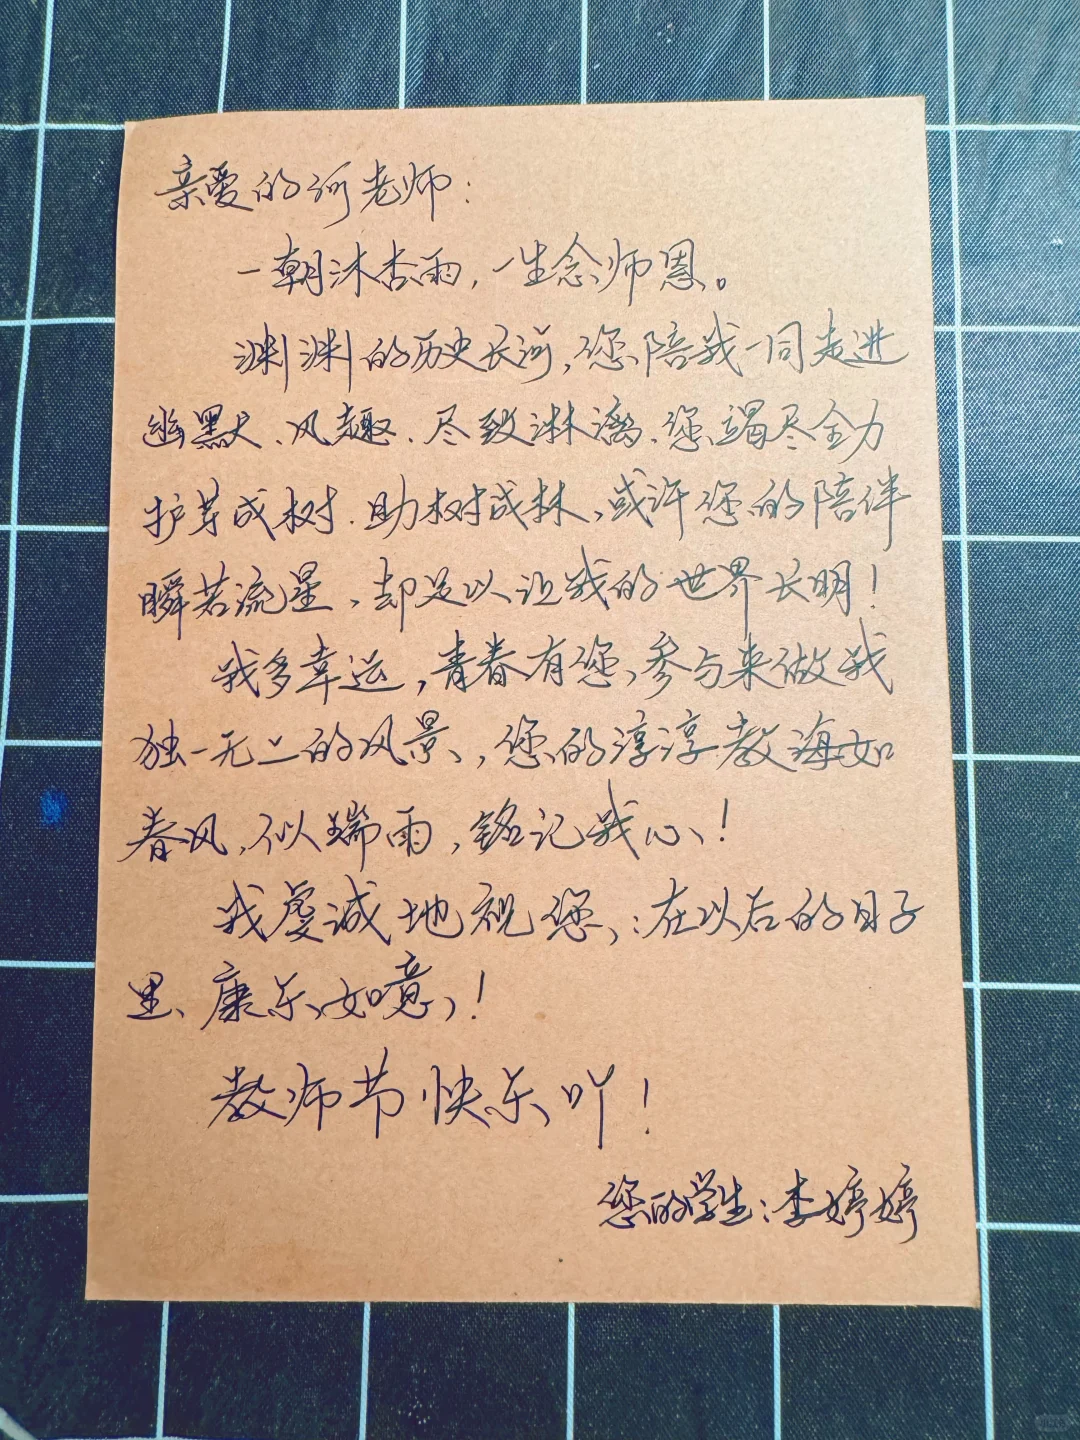 亲爱的何老师：
一朝沐杏雨，一生念师恩。
渊渊的历史长河，您陪我一同走进
幽默、风趣、尽致淋漓、您竭尽全力
护芽成树、助树成林、或许您的陪伴
瞬若流星，却足以让我的世界长明！
我多幸运，青春有您，参与来做我
独一无二的风景，您的谆谆教诲如
春风，似瑞雨，铭记我心！
我虔诚地祝您：在以后的日子
里、康乐如意！
教师节快乐吖！
您的学生：李婷婷